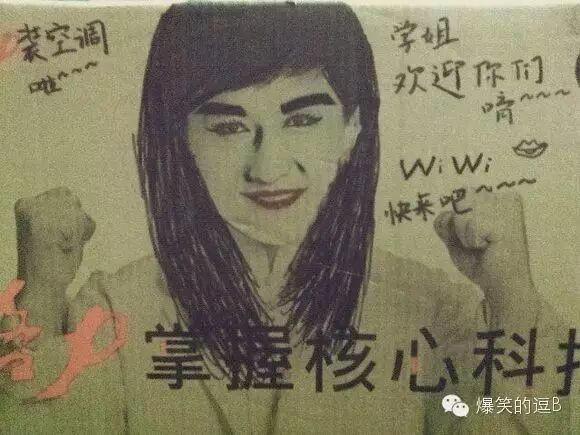 装空调
啦~~~
学姐
欢迎你们
唷~~~
WiWi
快来吧~~~~
掌握核心科技
爆笑的逗B